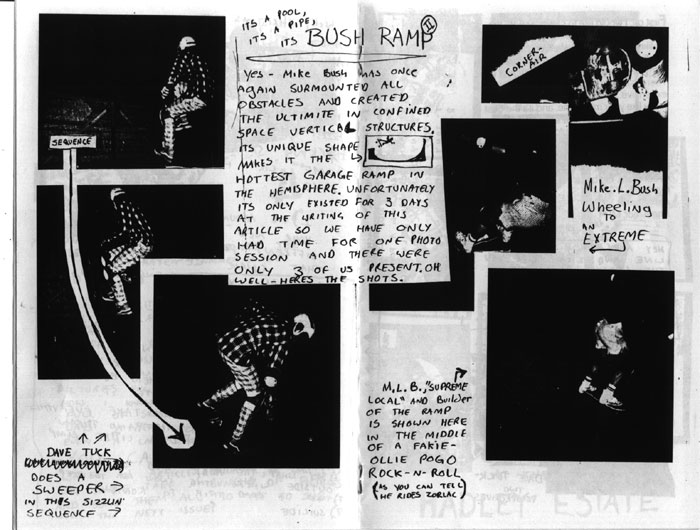 ITS A POOL,
ITS A PIPE,
ITS BUSH RAMP II
YES - MIKE BUSH HAS ONCE
AGAIN SURMOUNTED ALL
OBSTACLES AND CREATED
THE ULTIMITE IN CONFINED
SPACE VERTICAL STRUCTURES.
ITS UNIQUE SHAPE
MAKES IT THE
HOTTEST GARAGE RAMP IN
THE HEMISPHERE. UNFORTUNATELY
ITS ONLY EXISTED FOR 3 DAYS
AT THE WRITING OF THIS
ARTICLE SO WE HAVE ONLY
HAD TIME FOR ONE PHOTO
SESSION AND THERE WERE
ONLY 3 OF US PRESENT. OH
WELL - HERES THE SHOTS.
SEQUENCE
DAVE TUCK
DOES A
SWEEPER →
IN THIS SIZZLIN'
SEQUENCE →
CORNER-
AIR
Mike. L. Bush
Wheeling
TO
AN
EXTREME
M.L.B., "SUPREME
LOCAL" AND BUilder
OF THE RAMP
IS SHOWN HERE
IN THE MIDDLE
OF A FAKIE-
OLLIE POGO
ROCK-N-ROLL
(AS YOU CAN TELL
HE RIDES ZORLAC)
HADLEY ESTATE